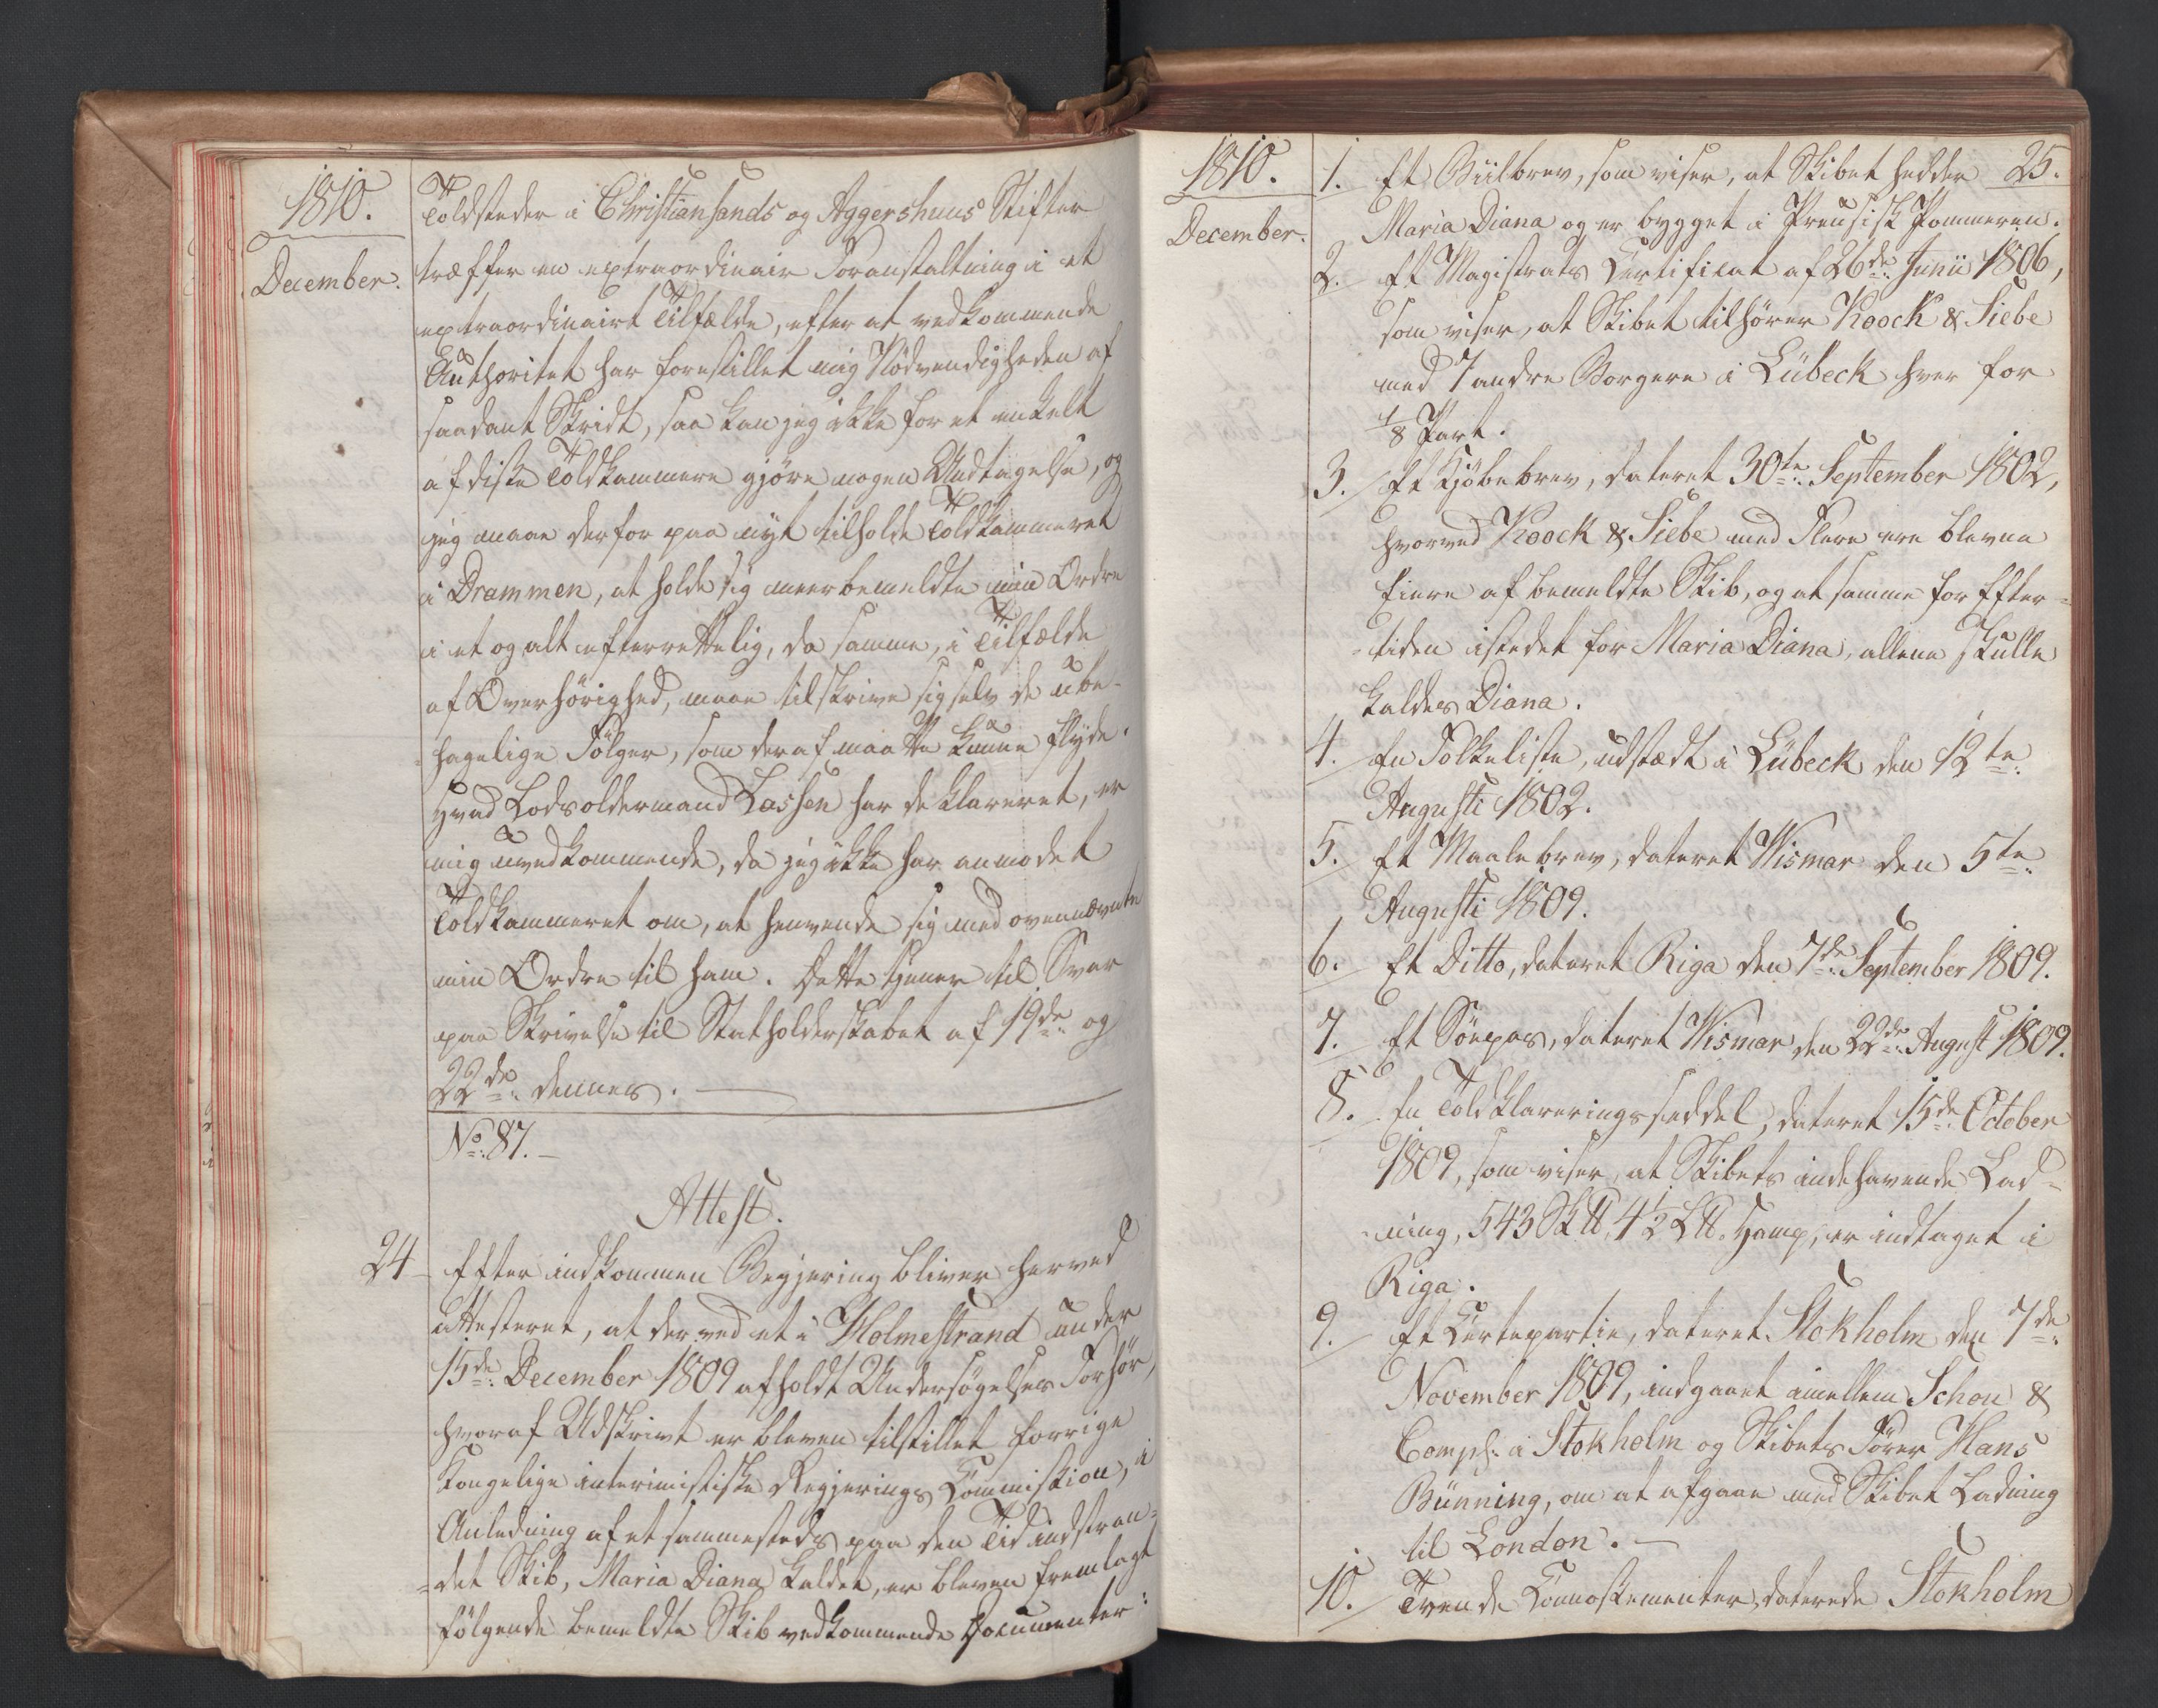 1810.
December.
Toldsteder i Christiansands og Aggershuus Stifter
træffer en extraordinair Foranstaltning i et
extraordinairt Tilfælde, efter at vedkommende
Authoritet har forestillet mig Nødvendigheden af
saadant Skridt, saa kan jeg ikke for et enkelt
af diske Toldkammere gjöre nogen Undtagelse, og
jeg maae derfor paa nyt tilholde Toldkammeret
i Drammen, at holde sig meerbemeldte min Ordre
i et og alt efterrettelig, da samme, i Tilfælde
af Overhörighed, maae tilskrive sig selv de ube-
hagelige Fölger, som deraf maatte kunne flyde.
Hvad Lodsoldermand Lassen har deklareret, er
mig uvedkommende, da jeg ikke har anmodet
Toldkammeret om, at henvende sig med ovennævnte
min Ordre til ham. Dette tjener til Svar
paa Skrivelse til Statholderskabet af 19de og
22de dennes.
No 87.
Attest.
24 Efter indkommen Begjering bliver herved
attesteret, at der ved et i Holmestrand under
15de December 1809 afholdt Undersögelses Forhör,
hvoraf Udskrivt er bleven tilstillet forrige
Kongelige interimistiske Regjerings Commission, i
Anledning af et sammesteds paa den Tid indstran-
det Skib, Maria Diana kaldet, er bleven fremlagt
fölgende bemeldte Skib vedkommende Documenter:
1810.
December.
25.
1. Et Biilbrev, som viser, at Skibet hedder
Maria Diana og er bygget i Preusisk Pommeren.
2. Et Magistrats Certificat af 26de Junii 1806,
som viser, at Skibet tilhörer Koock & Siebe
med 7 andre Borgere i Lübeck hver for
1/8 Part.
3. Et Kjöbebrev, dateret 30te September 1802,
hvorved Koock & Siebe med Flere ere blevne
Eiere af bemeldte Skib, og at samme for Efter-
tiden istedet for Maria Diana, allene skulle
kaldes Diana.
4. En Folkeliste, udstædt i Lübeck den 12te
Augusti 1802.
5. Et Maalebrev, dateret Wismar den 5te
Augusti 1809.
6. Et Ditto, dateret Riga den 7de September 1809.
7. Et Söepas, dateret Wismar den 22de August 1809.
8. En Toldklareringsseddel, dateret 15de October
1809, som viser, at Skibets indehavende Lad-
ning, 543 Sk℔ 4½ L℔ Hamp, er indtaget i
Riga.
9. Et Certepartie, dateret Stokholm den 7de
November 1809, indgaaet imellem Schon &
Comp: i Stokholm og Skibets Förer Hans
Bünning, om at afgaae med Skibet Ladning
til London.
10. Tvende Connossementer, daterede Stokholm